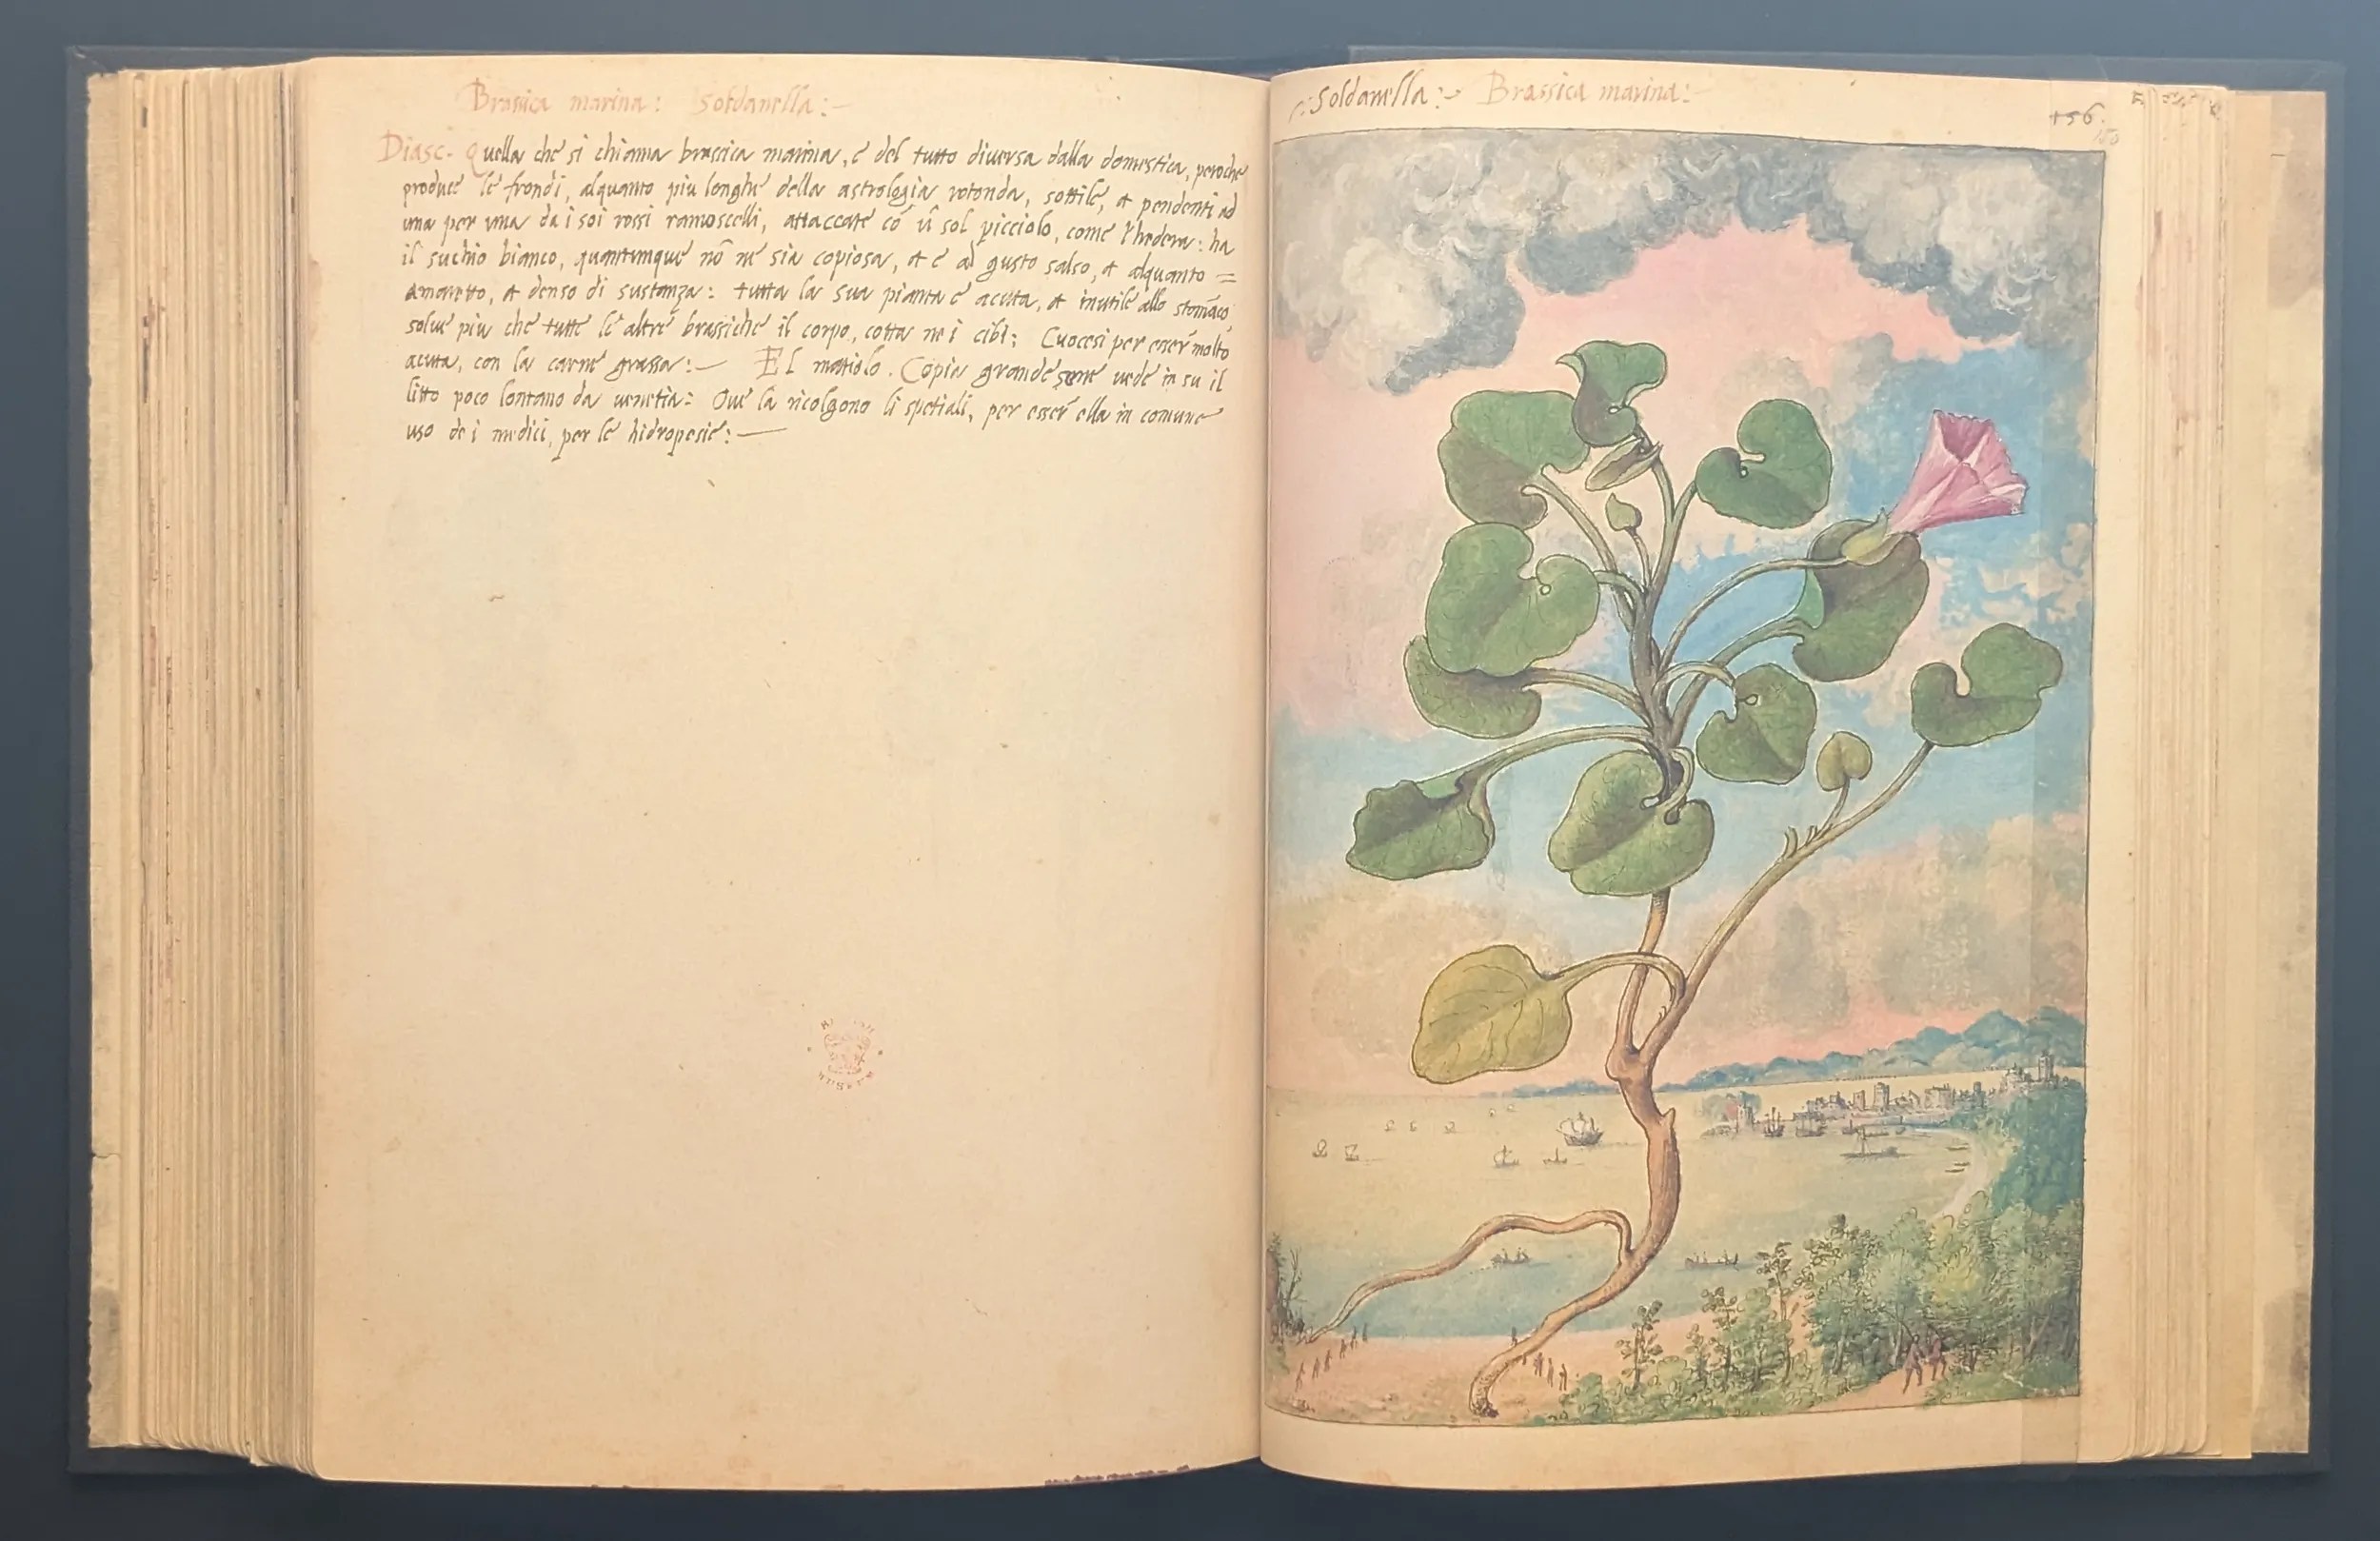 Brassica marina: Soldanella:-
Diasc. Quella che si chiama brassica marina, è del tutto diuersa dalla domestica, peroche
produce le frondi, alquanto piu longhe della astrologia rotonda, sottile, et pendenti ad
una per una da i soi rossi ramoscelli, attaccate cō ū sol picciolo, come l'hedera: ha
il suchio bianco, quantunque nō ne sia copiosa, et è al gusto salso, et alquanto =
Amaretto, et denso di sustanza: tutta la sua pianta è acuta, et inutile allo stomaco
solue piu che tutte le altre brassiche il corpo, cotta ne i cibi: Cuocesi per esser molto
acuta, con la carne grassa:- El mattiolo. Copia grande uede in su il
litto poco lontano da uenetia: Oue la ricolgono li spetiali, per esser ella in comune
uso de i medici, per le hidropesie:-
Soldanella:- Brassica marina:-
156.